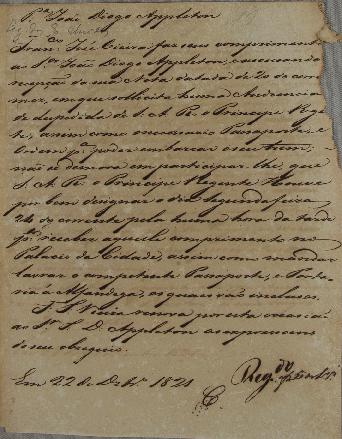 Pª João Diogo Appleton
Fran.co José Vieira faz seus comprimentos
ao Sr. João Diogo Appleton, e accusando a
recepção da sua Nota datada de 20 do corr.
mez, em que sollicita huma Audiencia
de despedida de S. A. R. o Principe Rege
te, assim como o necessario Passaporte, e
Ordem pª poder embarcar o seu trem;
não se demora em participar-lhe, que
S. A. R. o Principe Regente Houve
por bem designar o dia Segunda feira
24 do corrente pela huma hora da tarde
pª receber aquelle comprimento no
Palacio da Cidade, assim como mandar
lavrar o competente Passaporte, e Porta
ria á Alfandega, os quaes vão inclusos.
F. J. Vieira renova por esta occasião
ao Sr. J. D. Appleton as expressoens
do seu obsequio.
Em 22 de Dezbr.o 1821
Reg.do